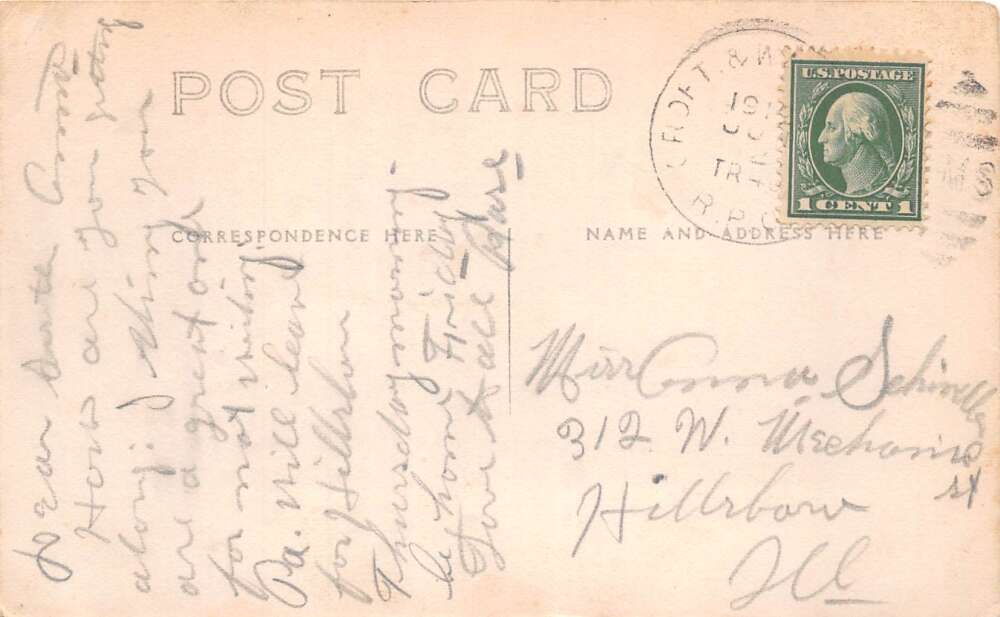 POST CARD
CORRESPONDENCE HERE
NAME AND ADDRESS HERE
U.S. POSTAGE
1 CENT 1
& W
TR
R.P.O
Dear
How are you getting
along? I think you
are a great one
for not writing
Pa. will leave
for Hillsboro
Thursday morning
be home Friday
Love to all
Miss Anna
312 W. Mechanic
st
Hillsboro
Ill